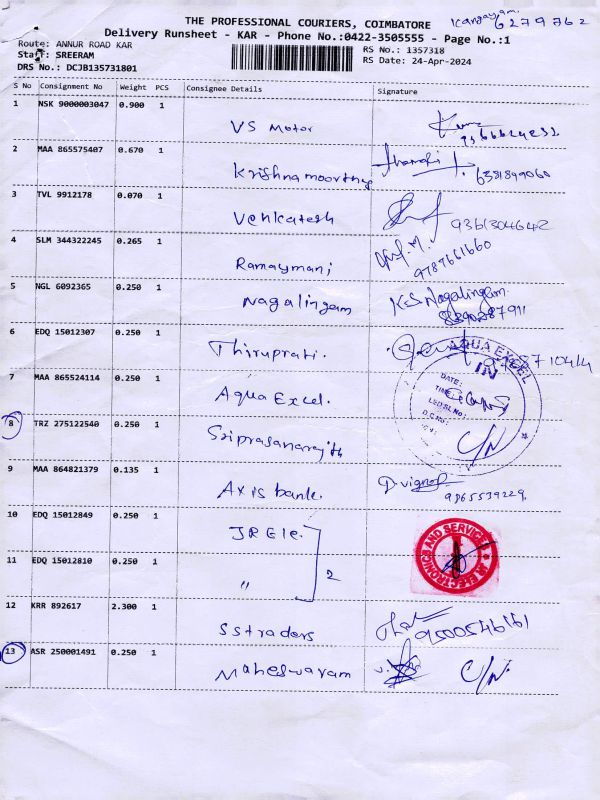 THE PROFESSIONAL COURIERS, COIMBATORE
Kangayam
6279762
Delivery Runsheet - KAR - Phone No.:0422-3505555 - Page No.:1
Route: ANNUR ROAD KAR
RS No.: 1357318
Staff: SREERAM
RS Date: 24-Apr-2024
DRS No.: DCJB135731801
S No Consignment No Weight PCS Consignee Details Signature
1 NSK 9000003047 0.900 1 VS Motor
2 MAA 865575407 0.670 1 Krishnamoorthy 6381899060
3 TVL 9912178 0.070 1 Venkatesh 9361304642
4 SLM 344322245 0.265 1 Ramaymani 9787661660
5 NGL 6092365 0.250 1 Nagalingam K.S Nagalingam
6 EDQ 15012307 0.250 1 Thiruprati.
7 MAA 865524114 0.250 1 Aqua Excel.
AQUA EXCEL
IN
DATE:
TIME:
D.C No.:
C/N
8 TRZ 275122540 0.250 1 Sriprasanarajth
9 MAA 864821379 0.135 1 Axis bank. D.vignesh
9865539229
10 EDQ 15012849 0.250 1 JR Ele.
11 EDQ 15012810 0.250 1 " 2
JR ELECTRONICS AND SERVICES
12 KRR 892617 2.300 1 SS traders 9500546161
13 ASR 250001491 0.250 1 Maheswaram C/N.